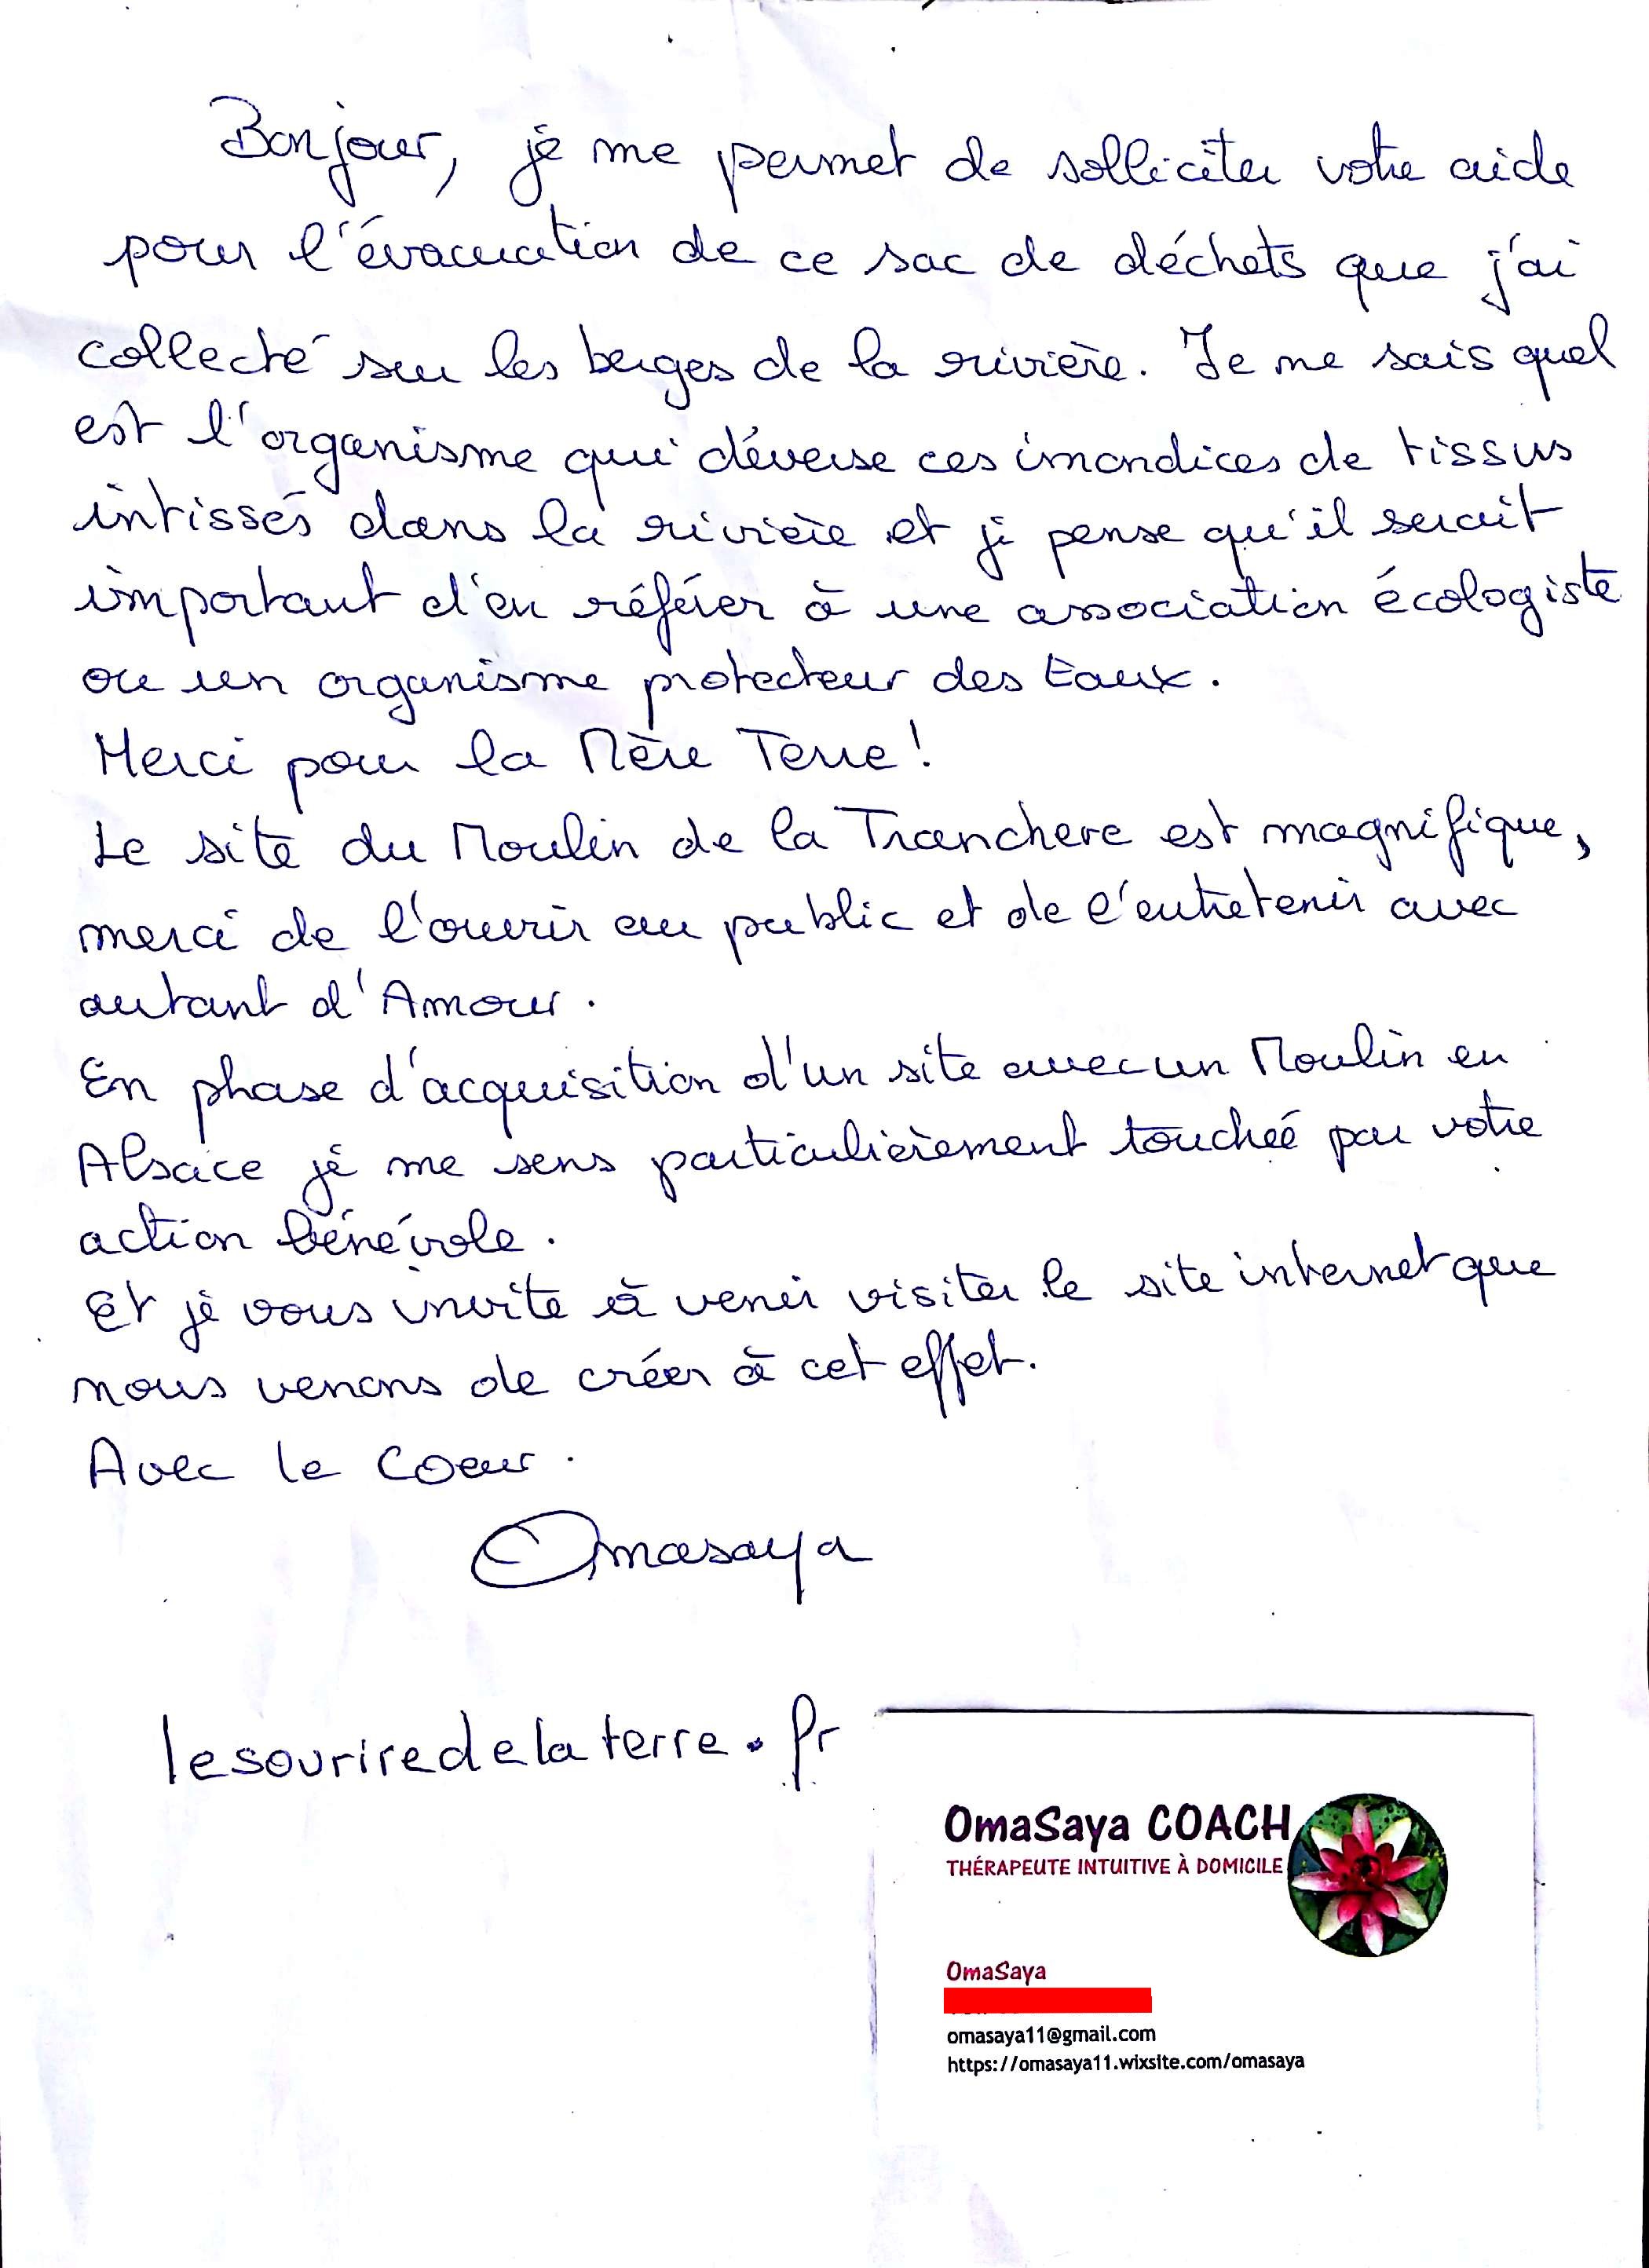 Bonjour, je me permet de solliciter votre aide
pour l'évacuation de ce sac de déchets que j'ai
collecté sur les berges de la rivière. Je ne sais quel
est l'organisme qui déverse ces imondices de tissus
intissés dans la rivière et je pense qu'il serait
important d'en référer à une association écologiste
ou un organisme protecteur des Eaux.
Merci pour la Mère Terre!
Le site du Moulin de la Tranchere est magnifique,
merci de l'ouvrir au public et de l'entretenir avec
autant d'Amour.
En phase d'acquisition d'un site avec un Moulin en
Alsace je me sens particulièrement touchée par votre
action bénévole.
Et je vous invite à venir visiter le site internet que
nous venons de créer à cet effet.
Avec le Coeur.
Omasaya
lesouriredelaterre.fr
OmaSaya COACH
THÉRAPEUTE INTUITIVE À DOMICILE
OmaSaya
omasaya11@gmail.com
https://omasaya11.wixsite.com/omasaya